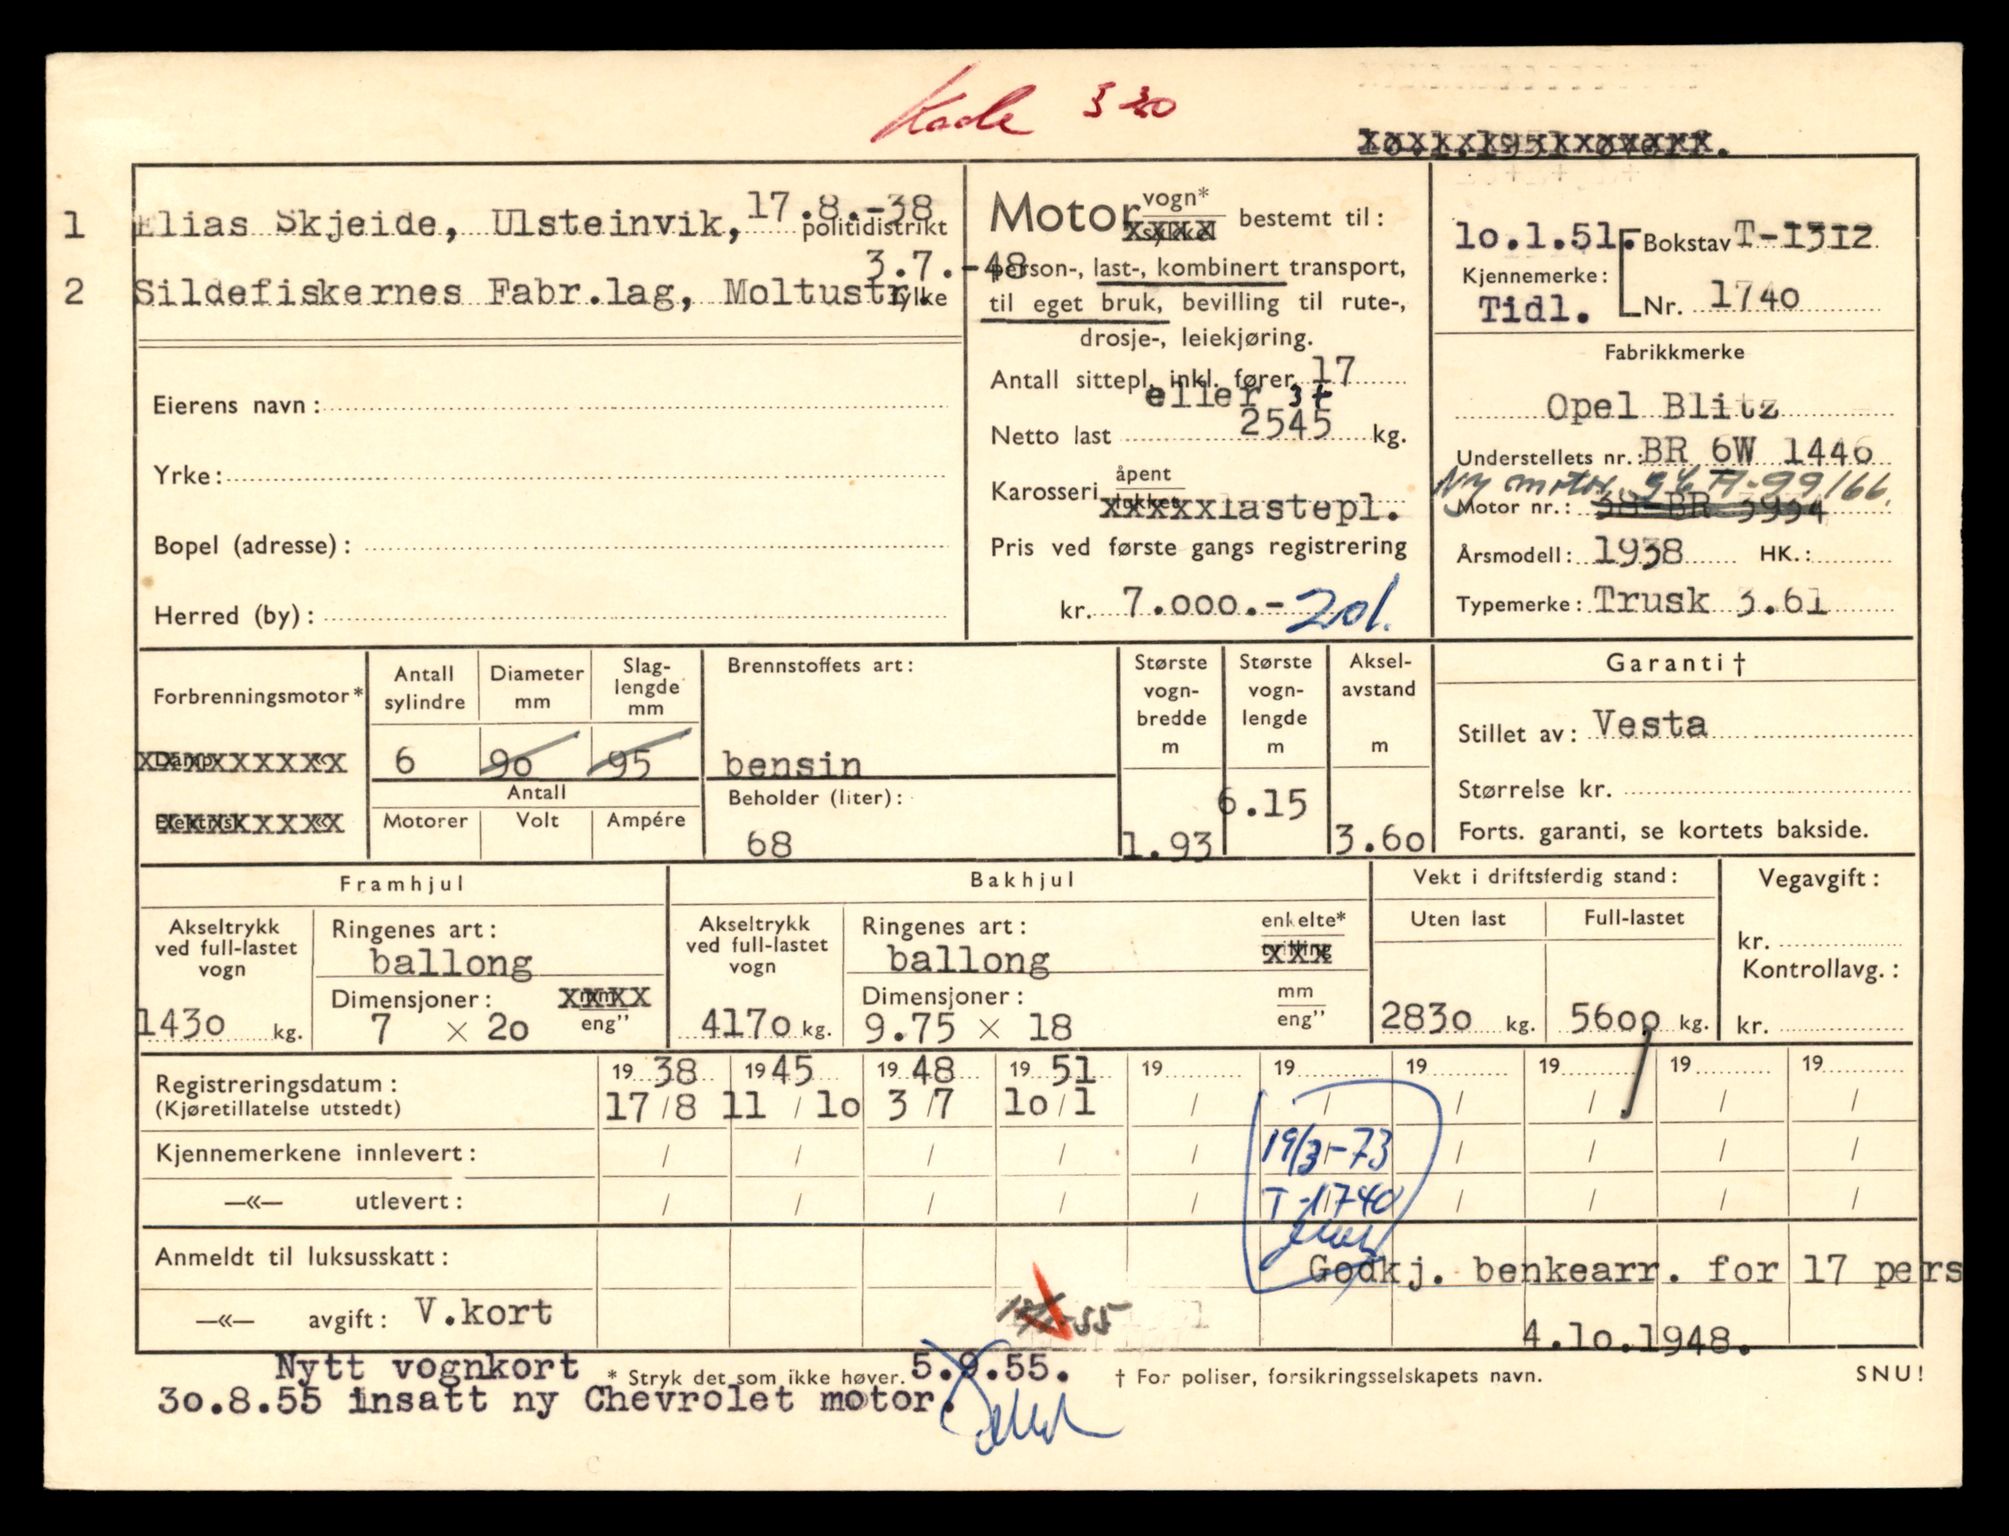 Kode § 30
1 Elias Skjeide, Ulsteinvik, 17.8.-38 politidistrikt
2 Sildefiskernes Fabr.lag, Moltustr. 3.7.-48 fylke
Eierens navn:
Yrke:
Bopel (adresse):
Herred (by):
Motor vogn* bestemt til:
person-, last-, kombinert transport,
til eget bruk, bevilling til rute-,
drosje-, leiekjøring.
Antall sittepl. inkl. fører 17
eller 3t
Netto last 2545 kg.
Karosseri åpent
lukket lastepl.
Pris ved første gangs registrering
kr. 7.000.-
10.1.51. Bokstav T-1312
Kjennemerke:
Tidl. Nr. 1740
Fabrikkmerke
Opel Blitz
Understellets nr.: BR 6W 1446
Ny motor
Motor nr.: 38-BR 3934
Årsmodell: 1938 HK.:
Typemerke: Trusk 3.61
Forbrenningsmotor*
Damp «
Elektrisk «
Antall sylindre
6
Diameter mm
90
Slag-lengde mm
95
Antall
Motorer Volt Ampére
Brennstoffets art:
bensin
Beholder (liter):
68
Største vogn-bredde m
1.93
Største vogn-lengde m
6.15
Aksel-avstand m
3.60
Garanti †
Stillet av: Vesta
Størrelse kr.
Forts. garanti, se kortets bakside.
Framhjul
Akseltrykk ved full-lastet vogn
1430 kg.
Ringenes art:
ballong
Dimensjoner:
7 × 20 eng"
Bakhjul
Akseltrykk ved full-lastet vogn
4170 kg.
Ringenes art: enkelte*
ballong tvilling
Dimensjoner: mm
9.75 × 18 eng"
Vekt i driftsferdig stand:
Uten last Full-lastet
2830 kg. 5600 kg.
Vegavgift:
kr.
Kontrollavg.:
kr.
Registreringsdatum: 19 38 19 45 19 48 19 51 19 19 19 19 19 19
(Kjøretillatelse utstedt) 17/8 11/10 3/7 10/1 / / / / / /
Kjennemerkene innlevert: / / / / / 19/3-73 / / / /
—«— utlevert: / / / / / T-1740 / / / /
Anmeldt til luksusskatt: Godkj. benkearr. for 17 pers
—«— avgift: V.kort 4.10.1948.
Nytt vognkort * Stryk det som ikke høver. 5.9.55. † For poliser, forsikringsselskapets navn. SNU!
30.8.55 insatt ny Chevrolet motor.